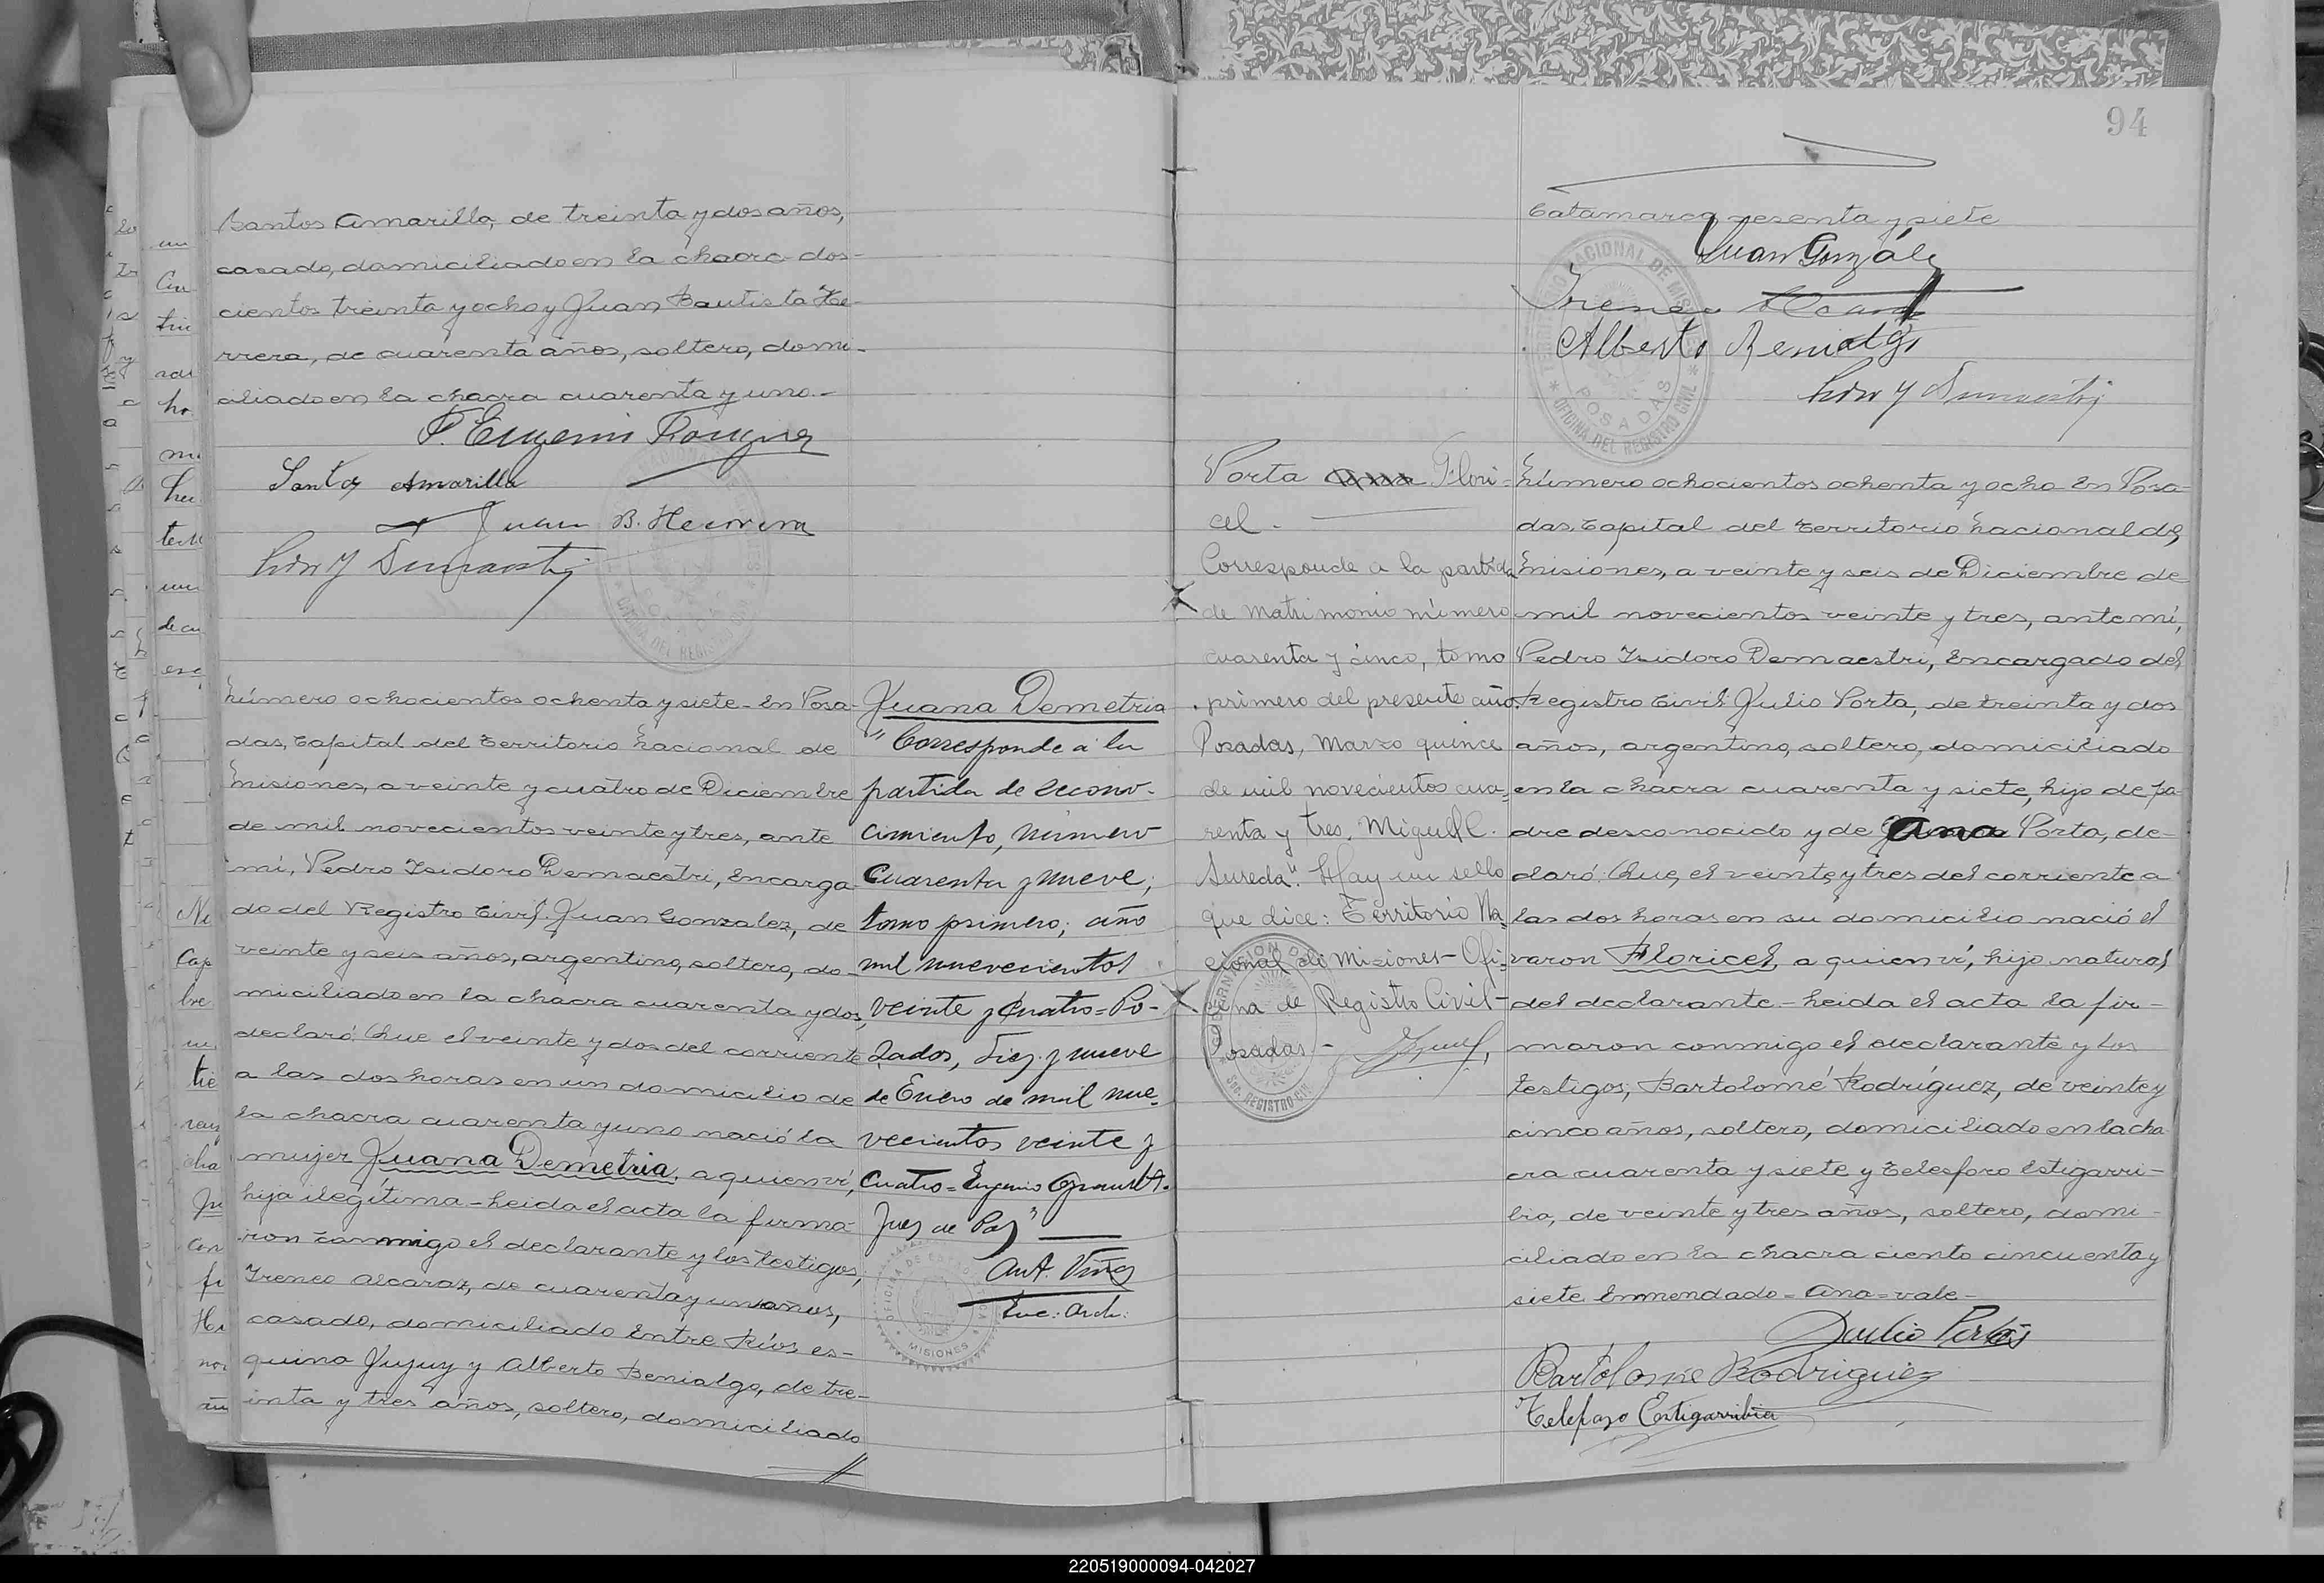 Santos Amarilla, de treinta y dos años,
casado, domiciliado en la chacra dos-
cientos treinta y ocho y Juan Bautista He-
rrera, de cuarenta años, soltero, domi-
ciliado en la chacra cuarenta y uno.-
Santos Amarilla
Juan B. Herrera
Número ochocientos ochenta y siete - En Posa-
das, Capital del Territorio Nacional de
Misiones, a veinte y cuatro de Diciembre
de mil novecientos veinte y tres, ante
mi, Pedro Isidoro Demaestri, Encarga-
do del Registro Civil. Juan Gonzalez, de
veinte y seis años, argentino, soltero, do-
miciliado en la chacra cuarenta y dos,
declaró: Que el veinte y dos del corriente
a las dos horas en un domicilio de
la chacra cuarenta y uno nació la
mujer Juana Demetria, a quien ví,
hija ilegítima - Leida el acta la firma-
ron conmigo el declarante y los testigos,
Ireneo Alcaraz, de cuarenta y un años,
casado, domiciliado Entre Ríos es-
quina Jujuy y Alberto Benialgo, de tre-
inta y tres años, soltero, domiciliado
Juana Demetria
"Corresponde a la
partida de recono-
cimiento, número
cuarenta y nueve;
tomo primero; año
mil nuevecientos
veinte y cuatro = Po-
sadas, Diez y nueve
de Enero de mil nue-
vecientos veinte y
cuatro = Eugenio
Juez de Paz"
Enc: Arch:
MISIONES
94
Catamarca sesenta y siete
Juan González
Alberto Benialgo
POSADAS
OFICINA DEL REGISTRO CIVIL
Porta Flori-
cel -
Corresponde a la partida
de matrimonio número
cuarenta y cinco, tomo
primero del presente año.
Posadas, Marzo quince
de mil novecientos cua-
renta y tres. Miguel C.
Sureda". Hay un sello
que dice: Territorio Na-
cional de Misiones - Ofi-
cina de Registro Civil -
Posadas -
Número ochocientos ochenta y ocho En Posa-
das, Capital del Territorio Nacional de
Misiones, a veinte y seis de Diciembre de
mil novecientos veinte y tres, ante mi,
Pedro Isidoro Demaestri, Encargado del
Registro Civil Julio Porta, de treinta y dos
años, argentino, soltero, domiciliado
en la chacra cuarenta y siete, hijo de pa-
dre desconocido y de Ana Porta, de-
claró: Que, el veinte y tres del corriente a
las dos horas en su domicilio nació el
varon Floricel, a quien ví, hijo natural
del declarante - Leida el acta la fir-
maron conmigo el declarante y los
testigos, Bartolomé Rodríguez, de veinte y
cinco años, soltero, domiciliado en la cha-
cra cuarenta y siete y Telesforo Estigarri-
bia, de veinte y tres años, soltero, domi-
ciliado en la chacra ciento cincuenta y
siete Enmendado = Ana = vale -
Julio Porta
Bartolome Rodriguez
Telefozo Estigarribia
220519000094-042027